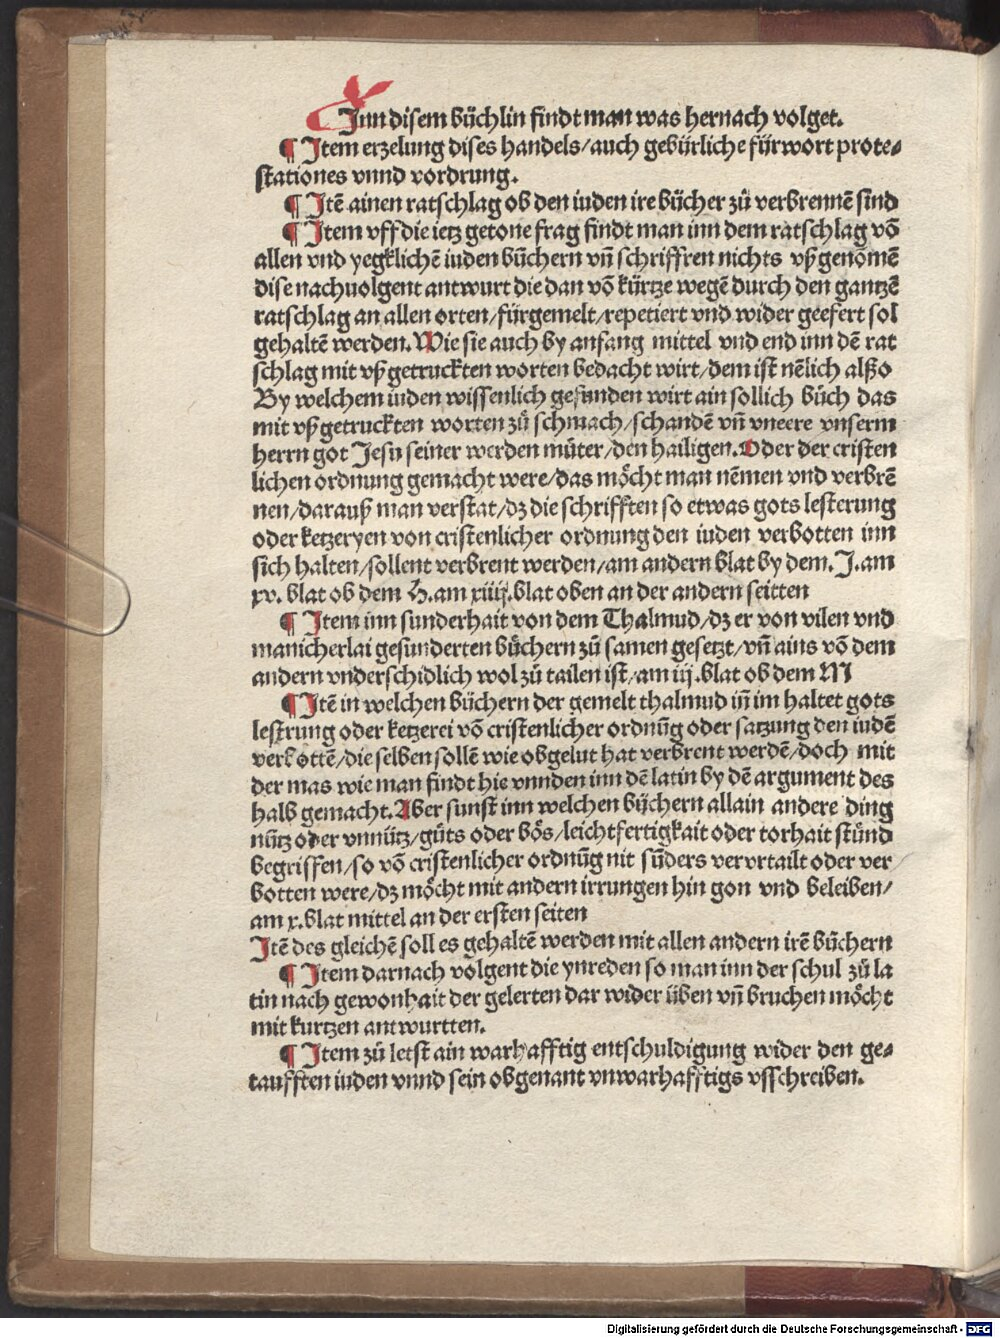 Inn disem büchlin findt man was hernach volget.
¶ Item erzelung dises handels/auch gebürliche fürwort prote⸗
stationes vnnd vordrung.
¶ Itē ainen ratschlag ob den iuden ire bücher zů verbrennē sind
¶ Item vff die ietz getone frag findt man inn dem ratschlag võ
allen vnd yegklichē iuden bůchern vñ schriffren nichts vßgenõmē
dise nachuolgent antwurt die dan võ kürtze wegē durch den gantzē
ratschlag an allen orten/fürgemelt/repetiert vnd wider geefert sol
gehaltē werden. Wie sie auch by anfang mittel vnd end inn dē rat
schlag mit vßgetruckten worten bedacht wirt/dem ist nēlich alßo
By welchem iuden wissenlich gefunden wirt ain sollich bůch das
mit vßgetruckten worten zů schmach/schandē vñ vneere vnserm
herrn got Jesu seiner werden můter/den hailigen. Oder der cristen
lichen ordnung gemacht were/das möcht man nēmen vnd verbrē
nen/darauß man verstat/dz die schrifften so etwas gots lesterung
oder ketzeryen von cristenlicher ordnung den iuden verbotten inn
sich halten/sollent verbrent werden/am andern blat by dem. J. am
xv. blat ob dem H. am xiiij. blat oben an der andern seitten
¶ Item inn sunderhait von dem Thalmud/dz er von vilen vnd
manicherlai gesunderten bůchern zů samen gesetzt/vñ ains võ dem
andern vnderschidlich wol zů tailen ist/am iij. blat ob dem M
¶ Itē in welchen büchern der gemelt thalmud iñ im haltet gots
lestrung oder ketzerei võ cristenlicher ordnũg oder satzung den iudē
verbottē/die selben sollē wie obgelut hat verbrent werdē/doch mit
der mas wie man findt hie vnnden inn dē latin by dē argument des
halb gemacht. Aber sunst inn welchen büchern allain andere ding
nütz oder vnnütz/gůts oder bös/leichtfertigkait oder torhait stünd
begriffen/so võ cristenlicher ordnũg nit sũders vervrtailt oder ver
botten were/dz möcht mit andern irrungen hin gon vnd beleiben/
am x. blat mittel an der ersten seiten
Itē des gleichē soll es gehaltē werden mit allen andern irē bůchern
¶ Item darnach volgent die ynreden so man inn der schul zů la
tin nach gewonhait der gelerten dar wider üben vñ bruchen möcht
mit kurtzen antwurtten.
¶ Item zů letst ain warhafftig entschuldigung wider den ge⸗
taufften iuden vnnd sein obgenant vnwarhafftigs vsschreiben.
Digitalisierung gefördert durch die Deutsche Forschungsgemeinschaft - DFG